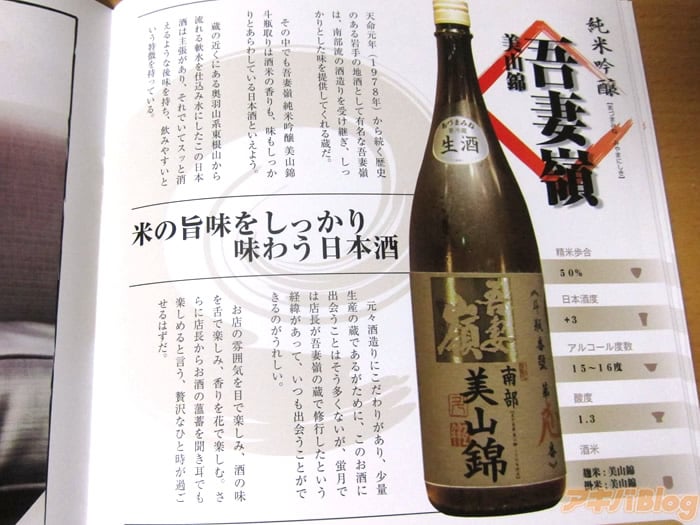 純米吟醸
吾妻嶺
美山錦
天命元年（1978年）から続く歴史
のある岩手の地酒として有名な吾妻嶺
は、南部流の酒造りを受け継ぎ、しっ
かりとした味を提供してくれる蔵だ。
その中でも吾妻嶺 純米吟醸 美山錦
斗瓶取りは酒米の香りも、味もしっか
りとあらわしている日本酒といえよう。
蔵の近くにある奥羽山系東根山から
流れる軟水を仕込み水にしたこの日本
酒は主張があり、それでいてスッと消
えるような後味を持ち、飲みやすいと
いう特徴を持っている。
米の旨味をしっかり
味わう日本酒
元々酒造りにこだわりがあり、少量
生産の蔵であるがために、このお酒に
出会うことはそう多くないが、蛍月で
は店長が吾妻嶺の蔵で修行したという
経緯があって、いつも出会うことがで
きるのがうれしい。
お店の雰囲気を目で楽しみ、酒の味
を舌で楽しみ、香りを花で楽しむ。さ
らに店長からお酒の薀蓄を聞き耳でも
楽しめると言う、贅沢なひと時が過ご
せるはずだ。
あづまみね
生酒
吾妻嶺
南部
美山錦
精米歩合
50%
日本酒度
+3
アルコール度数
15～16度
酸度
1.3
酒米
麹米：美山錦
掛米：美山錦
アキバBlog